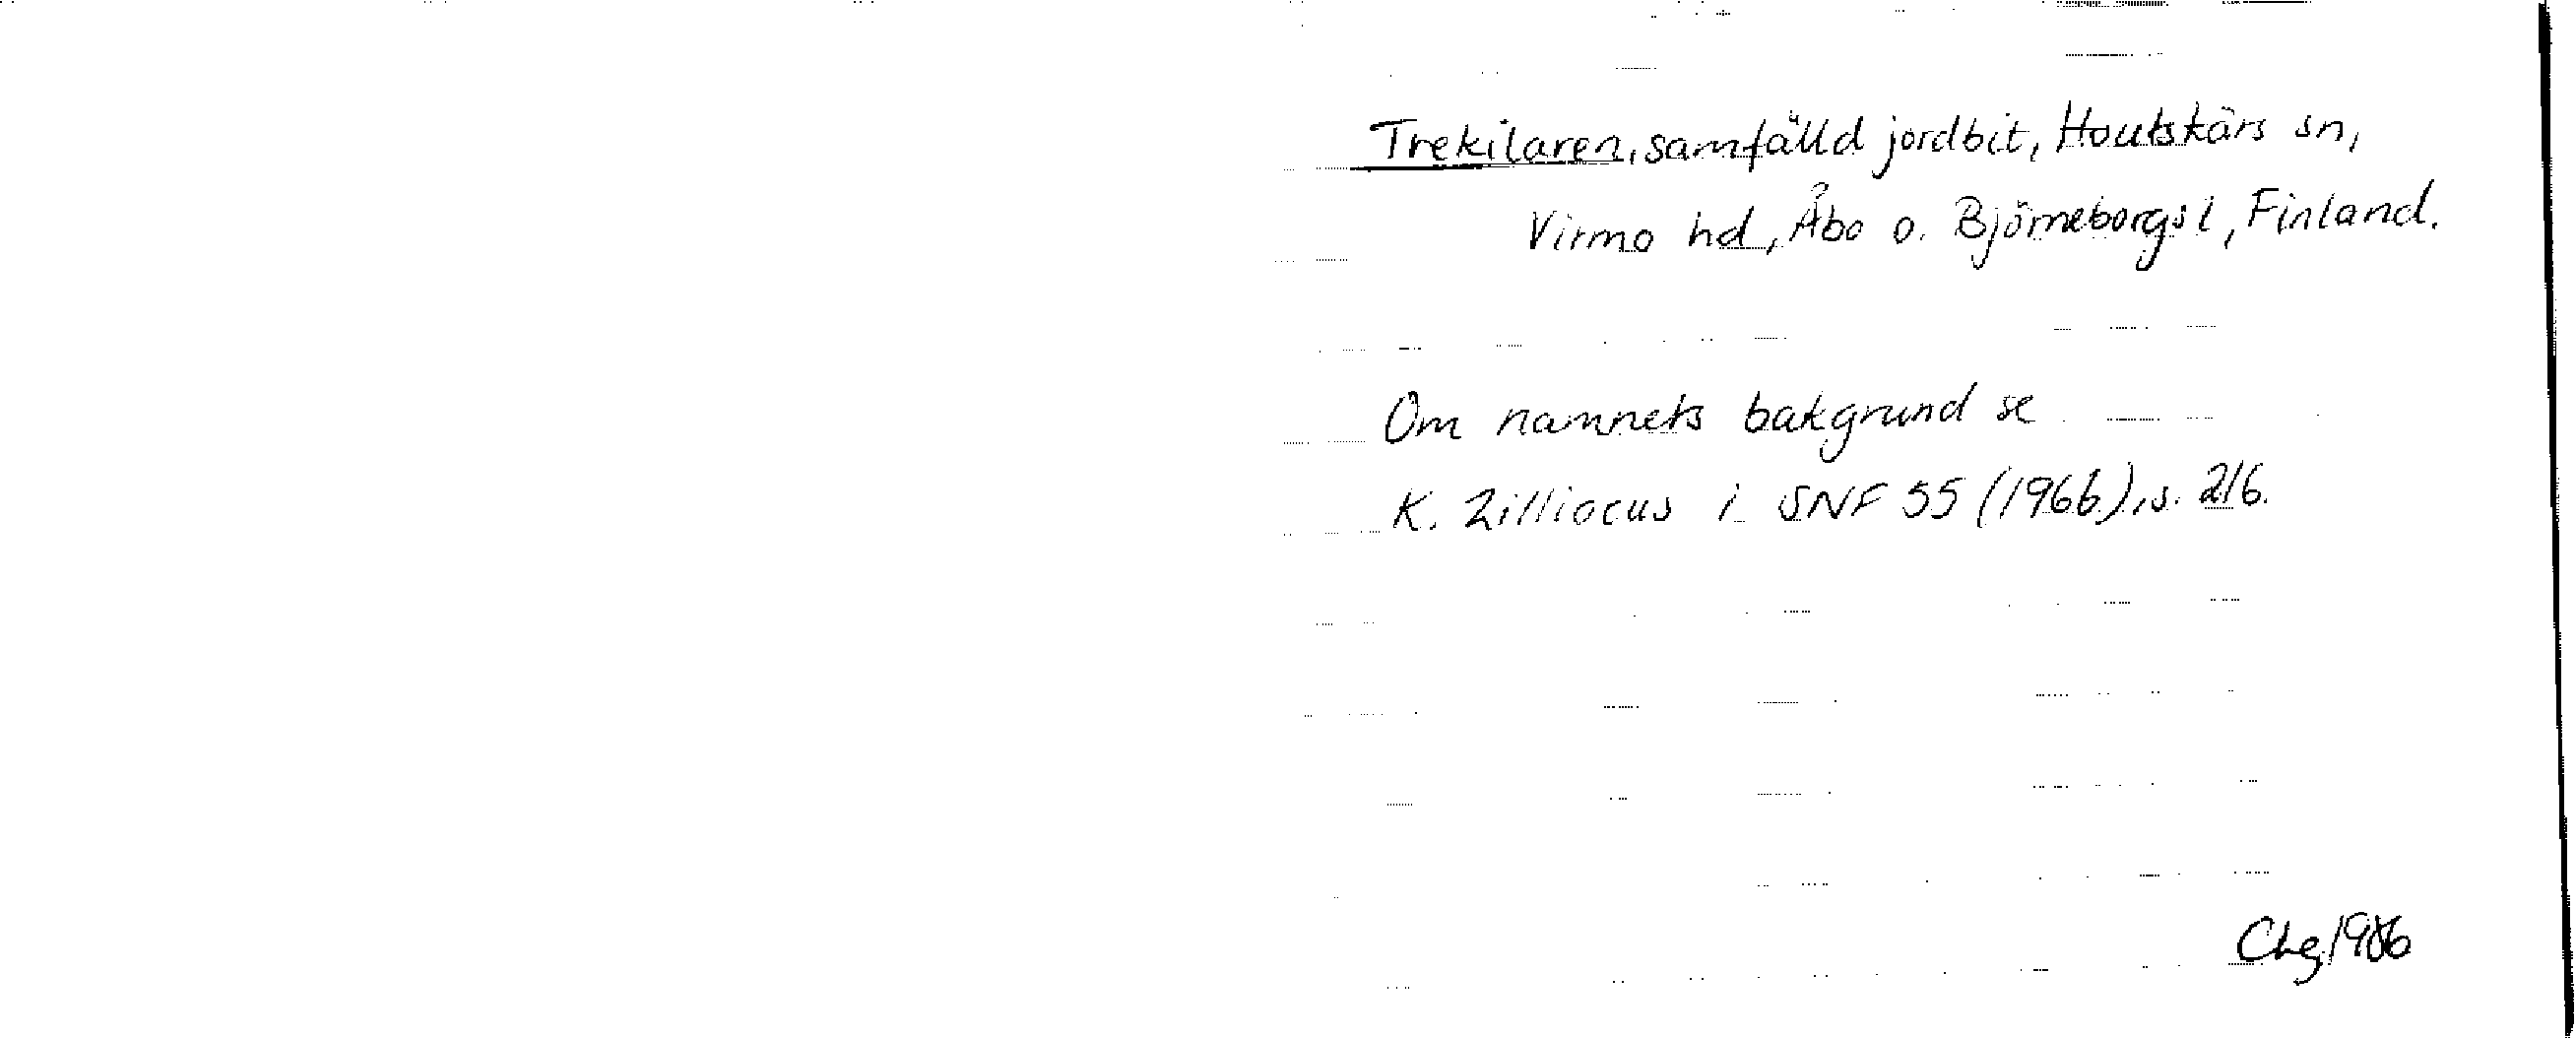 Trekilaren, samfälld jordbit, Houtskärs sn,
Virmo hd, Åbo o. Björneborgs l, Finland.
Om namnets bakgrund se
K. Zilliacus i SNF 55 (1966), s. 216.
1986